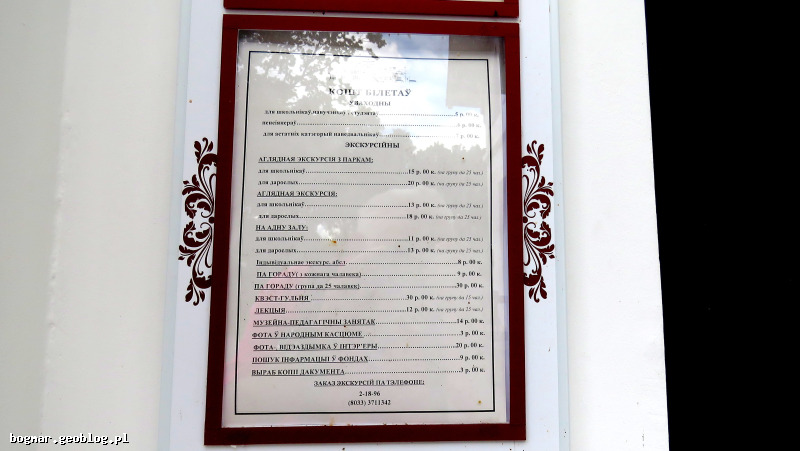 КОШТ БІЛЕТАЎ
УВАХОДНЫ
для школьнікаў,навучэнцаў,студэнта
пенсіянераў
для астатніх катэгорый наведвальнікаў
ЭКСКУРСІЙНЫ
АГЛЯДНАЯ ЭКСКУРСІЯ З ПАРКАМ:
для школьнікаў....15 р. 00 к. (на групу да 25 чал.)
для дарослых....20 р. 00 к. (на групу да 25 чал.)
АГЛЯДНАЯ ЭКСКУРСІЯ:
для школьнікаў....13 р. 00 к. (на групу да 25 чал.)
для дарослых....18 р. 00 к. (на групу да 25 чал.)
НА АДНУ ЗАЛУ:
для школьнікаў....11 р. 00 к. (на групу да 25 чал.)
для дарослых....13 р. 00 к. (на групу да 25 чал.)
Індывідуальнае экскурс. абсл.....8 р. 00 к.
ПА ГОРАДУ( з кожнага чалавека)....9 р. 00 к.
ПА ГОРАДУ (група да 25 чалавек)....30 р. 00 к.
КВЭСТ-ГУЛЬНЯ....30 р. 00 к. (на групу да 15 чал.)
ЛЕКЦЫЯ....12 р. 00 к. (на групу да 25 чал.)
МУЗЕЙНА-ПЕДАГАГІЧНЫ ЗАНЯТАК....14 р. 00 к.
ФОТА Ў НАРОДНЫМ КАСЦЮМЕ....3 р. 00 к.
ФОТА-, ВІДЭАЗДЫМКА Ў ІНТЭР'ЕРЫ....20 р. 00 к.
ПОШУК ІНФАРМАЦЫІ Ў ФОНДАХ....9 р. 00 к.
ВЫРАБ КОПІІ ДАКУМЕНТА....3 р. 00 к.
ЗАКАЗ ЭКСКУРСІЙ ПА ТЭЛЕФОНЕ:
2-18-96
(8033) 3711342
bognar.geoblog.pl